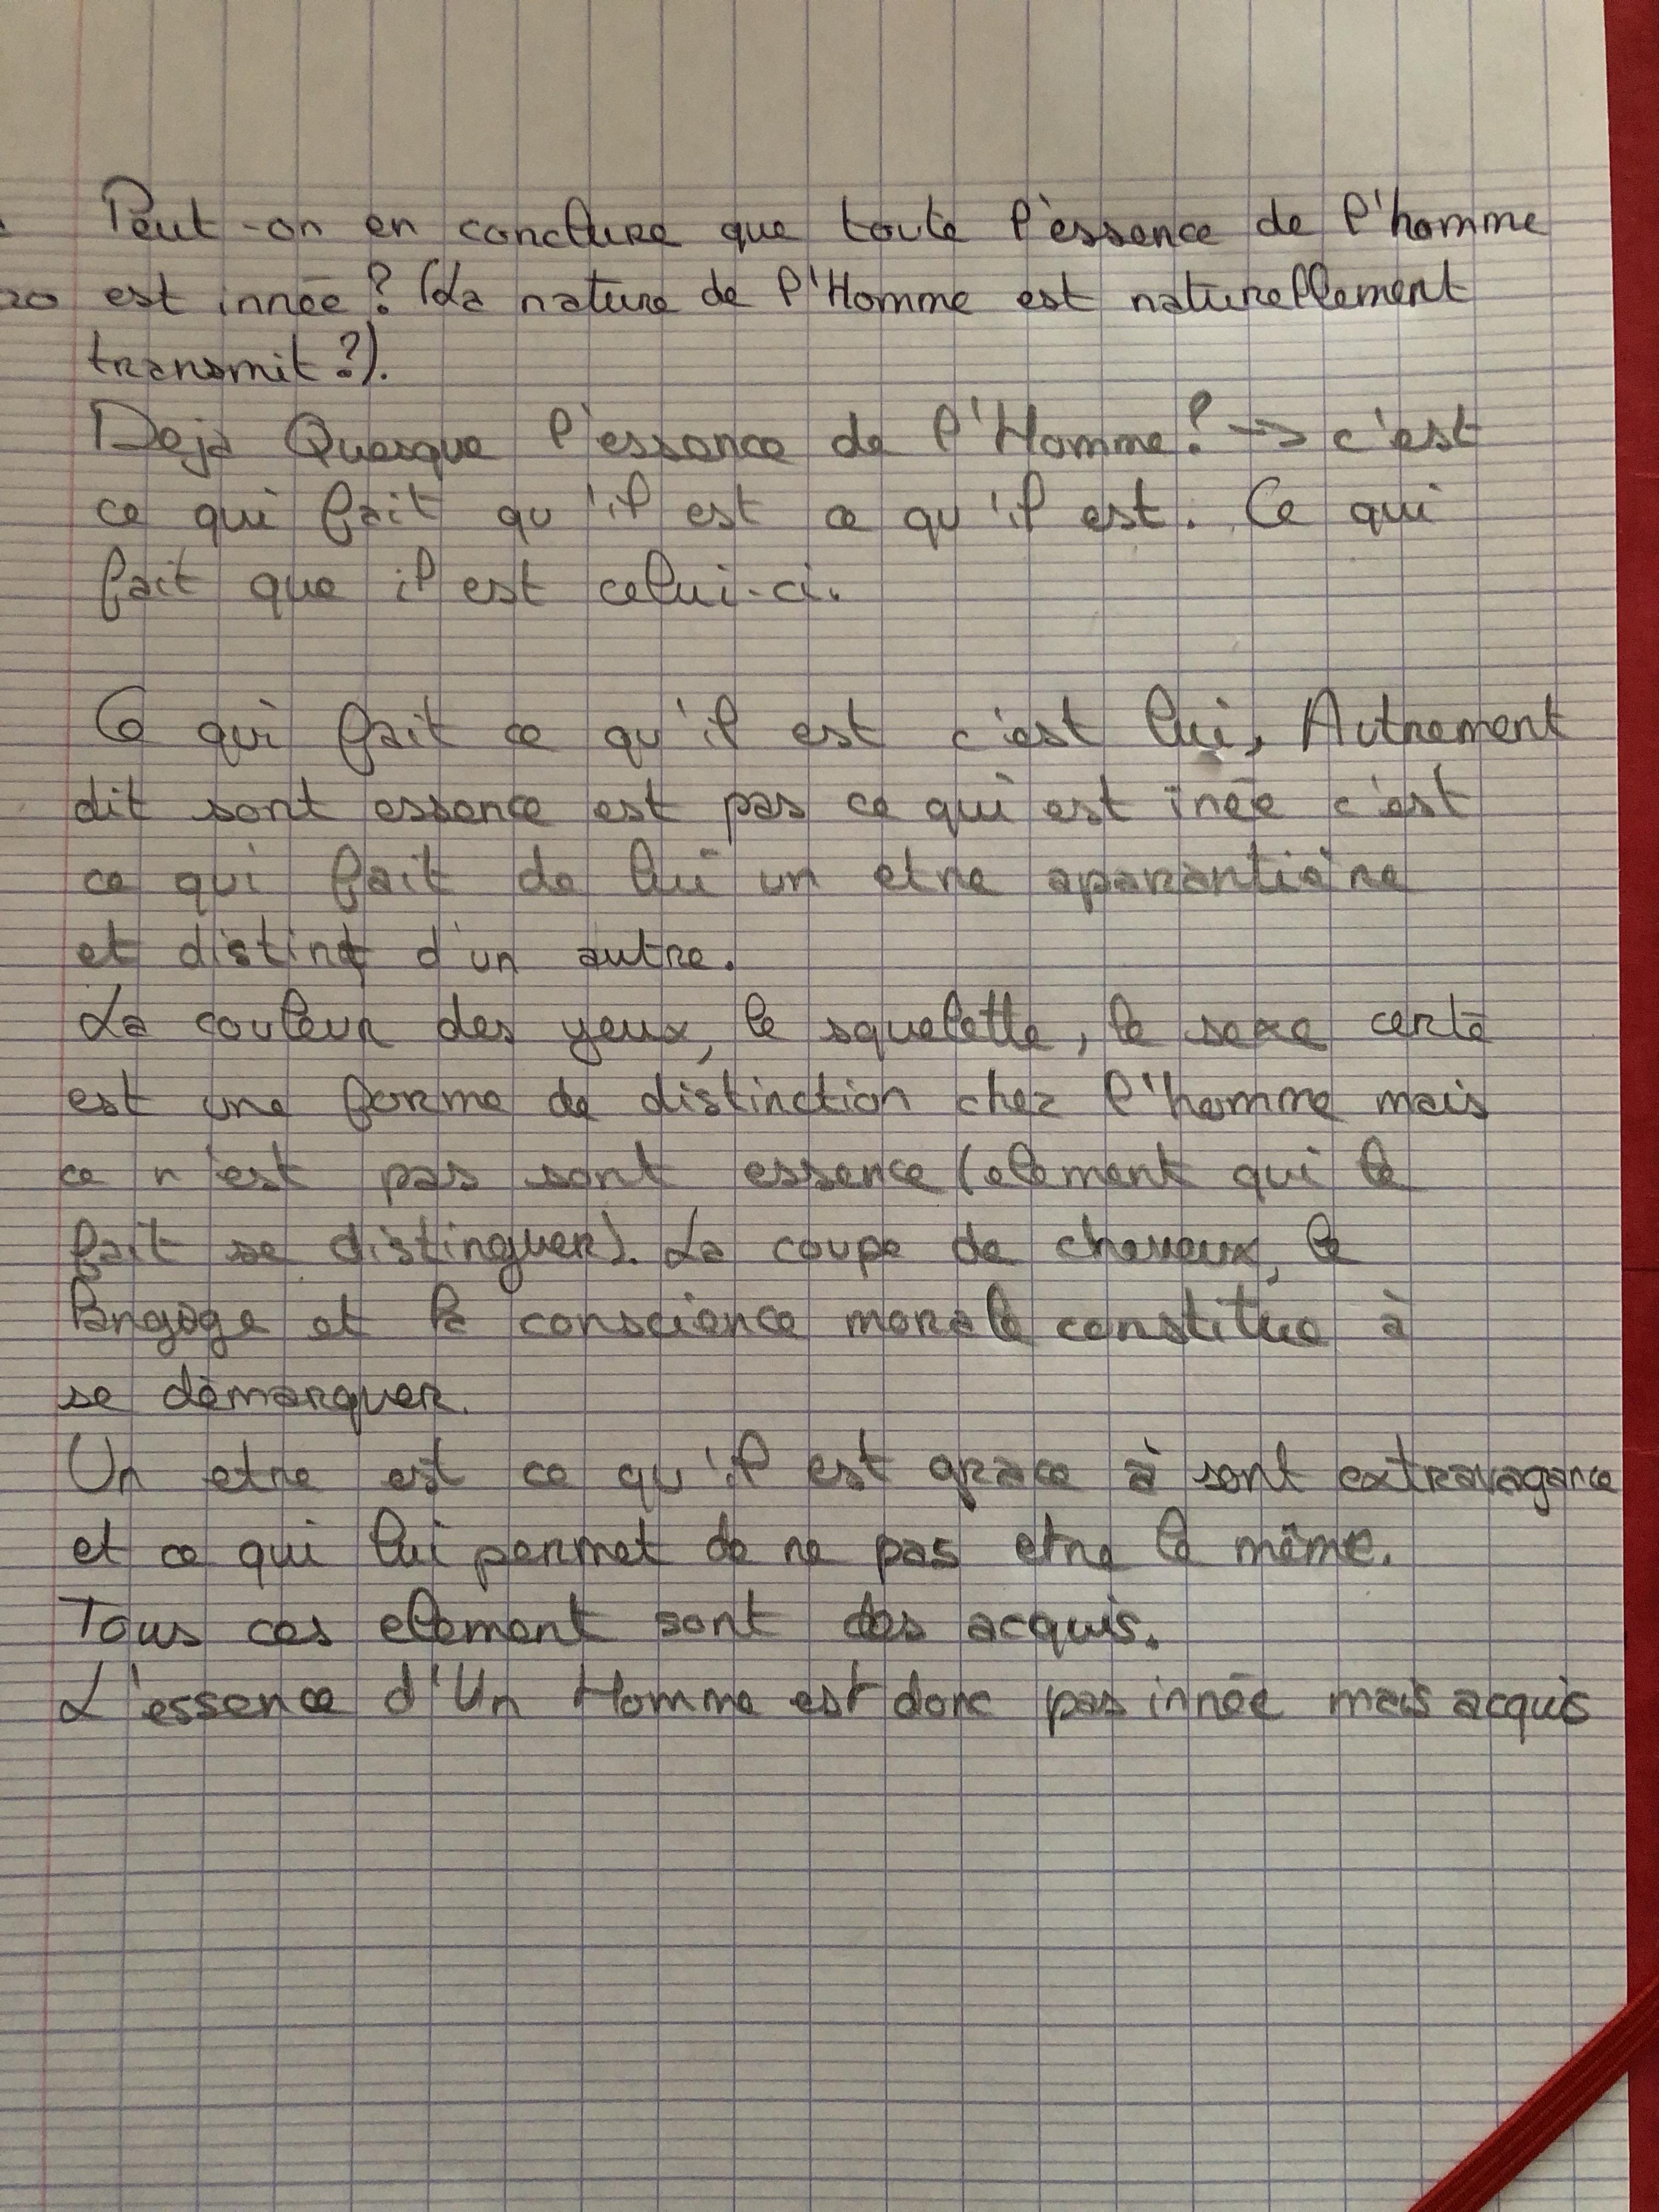 Peut-on en conclure que toute l'essence de l'homme
20 est innée? (La nature de l'Homme est naturellement
transmit?).
Dejà Quesque l'essence de l'Homme? -> c'est
ce qui fait qu'il est ce qu'il est. Ce qui
fait que il est celui-ci.
Ce qui fait ce qu'il est c'est lui, Autrement
dit sont essence est pas ce qui est inée c'est
ce qui fait de lui un etre
et distinct d'un autre.
La couleur des yeux, le squelette, le sexe certe
est une forme de distinction chez l'homme mais
ce n'est pas sont essence (element qui le
fait se distinguer). La coupe de cheveux, le
langage et la conscience morale constitue à
se démarquer.
Un etre est ce qu'il est grace à sont extravagance
et ce qui lui permet de ne pas etre le même.
Tous ces element sont des acquis.
L'essence d'Un Homme est donc pas innée mais acquis